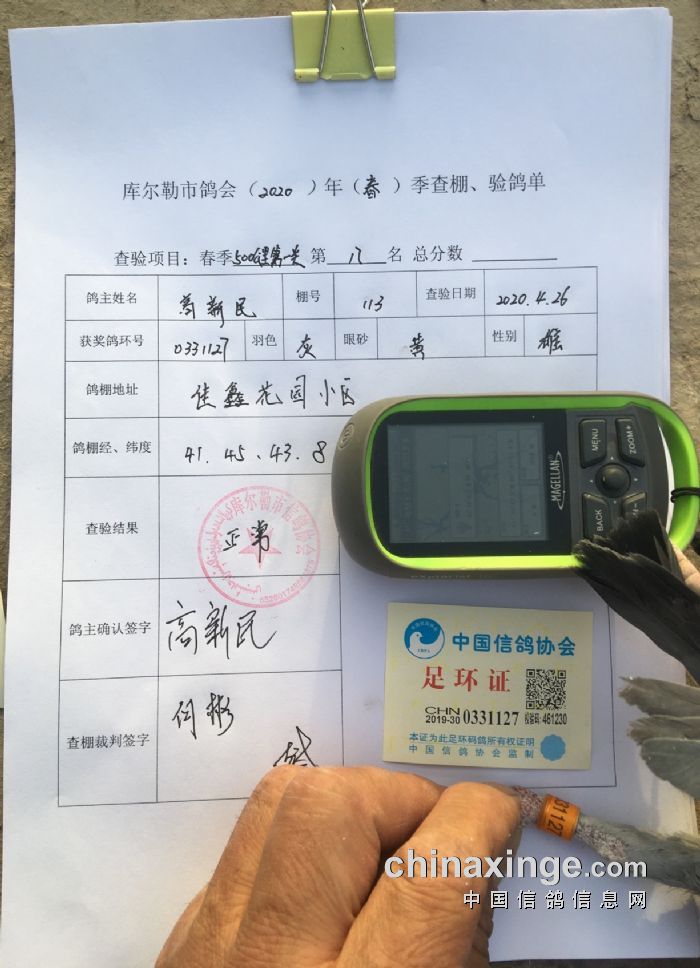 库尔勒市鸽会（2020）年（春）季查棚、验鸽单
查验项目：春季500 第 八 名 总分数
鸽主姓名 高新民 棚号 113 查验日期 2020.4.26
获奖鸽环号 0331127 羽色 灰 眼砂 黄 性别 雄
鸽棚地址 佳鑫花园小区
鸽棚经、纬度 41.45、43.8
查验结果 正常
库尔勒市信鸽协会
鸽主确认签字 高新民
查棚裁判签字 何彬
MAGELLAN
MENU
ZOOM+
BACK
eXplorist
中国信鸽协会
足环证
CHN
2019-30 0331127 校验码: 461230
本证为此足环码鸽所有权证明
中国信鸽协会监制
chinaxinge.com
中国信鸽信息网